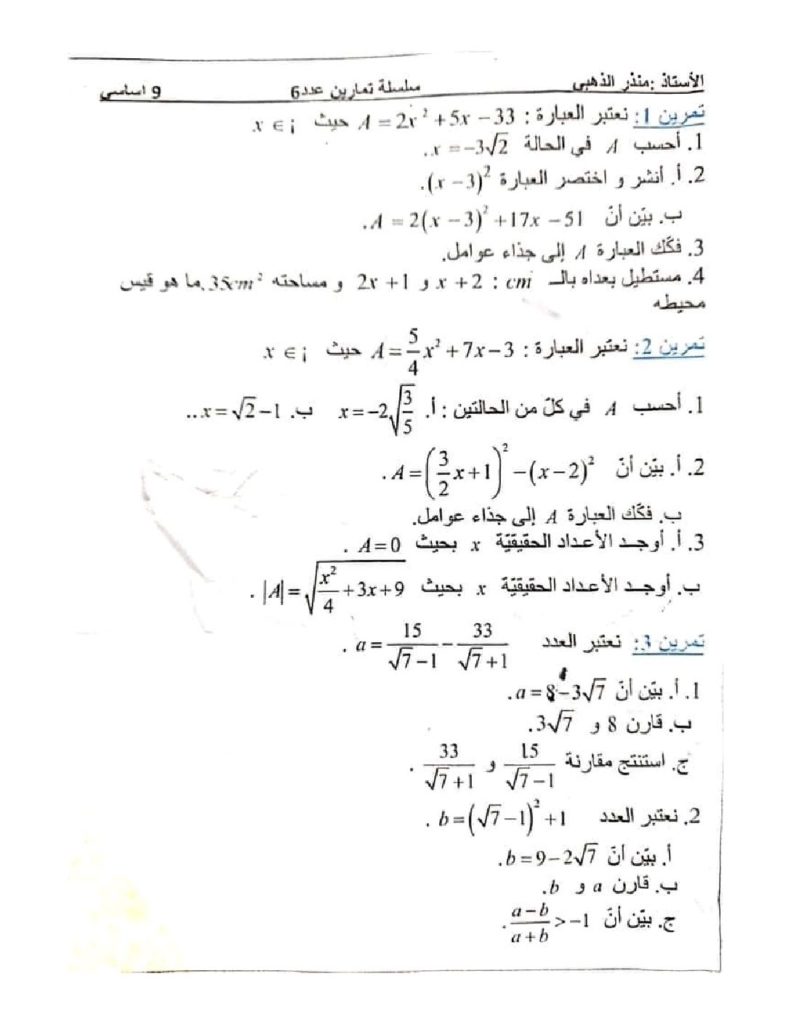 الأستاذ :منذر الذهبي سلسلة تمارين عدد6 9 اساسي
تمرين 1: نعتبر العبارة : A = 2x² +5x − 33 حيث x ∈ ¡
1. أحسب A في الحالة x = −3√2.
2. أ. أنشر و اختصر العبارة (x − 3)².
ب. بيّن أنّ A = 2(x − 3)² +17x − 51.
3. فكّك العبارة A إلى جذاء عوامل.
4. مستطيل بعداه بالـ cm : x + 2 و 2x +1 و مساحته 35cm². ما هو قيس
محيطه
تمرين 2: نعتبر العبارة : A = 5/4 x² + 7x − 3 حيث x ∈ ¡
1. أحسب A في كلّ من الحالتين : أ. x = −2√(3/5) ب. x = √2 − 1..
2. أ. بيّن أنّ A = (3/2 x + 1)² − (x − 2)² .
ب. فكّك العبارة A إلى جذاء عوامل.
3. أ. أوجد الأعداد الحقيقيّة x بحيث A = 0 .
ب. أوجد الأعداد الحقيقيّة x بحيث |A| = √(x²/4 + 3x + 9) .
تمرين 3: نعتبر العدد a = 15/(√7 − 1) − 33/(√7 + 1) .
1. أ. بيّن أنّ a = 8 − 3√7.
ب. قارن 8 و 3√7.
ج. استنتج مقارنة 15/(√7 − 1) و 33/(√7 + 1) .
2. نعتبر العدد b = (√7 − 1)² + 1 .
أ. بيّن أنّ b = 9 − 2√7.
ب. قارن a و b.
ج. بيّن أنّ (a − b)/(a + b) > −1 .